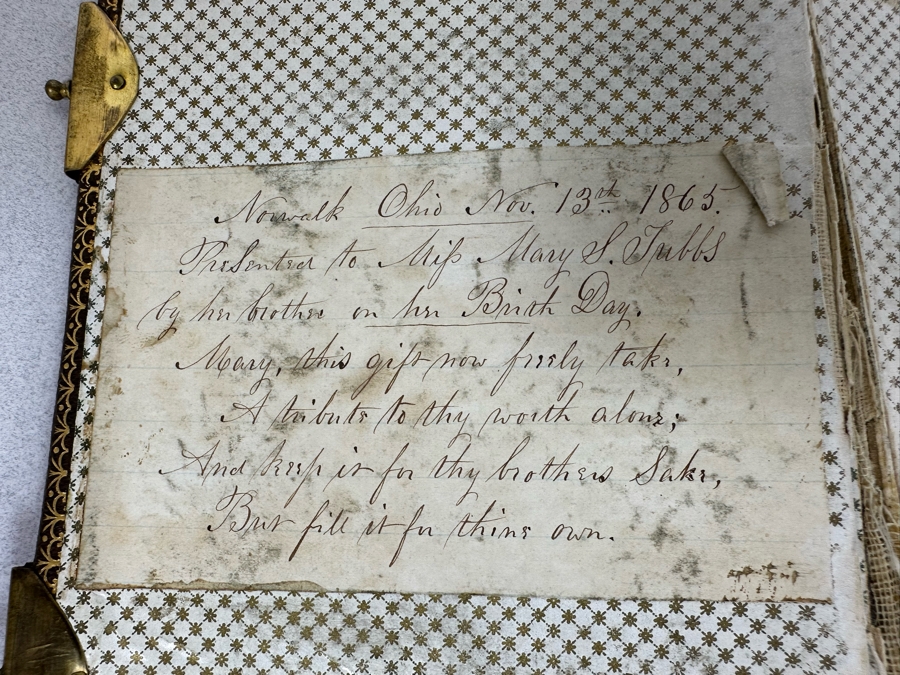 Norwalk Ohio Nov. 13th 1865.
Presented to Miſs Mary S. Tubbs
by her brother on her Birth Day.
Mary, this gift now freely take,
A tribute to thy worth alone;
And keep it for thy brothers Sake,
But fill it for thine own.